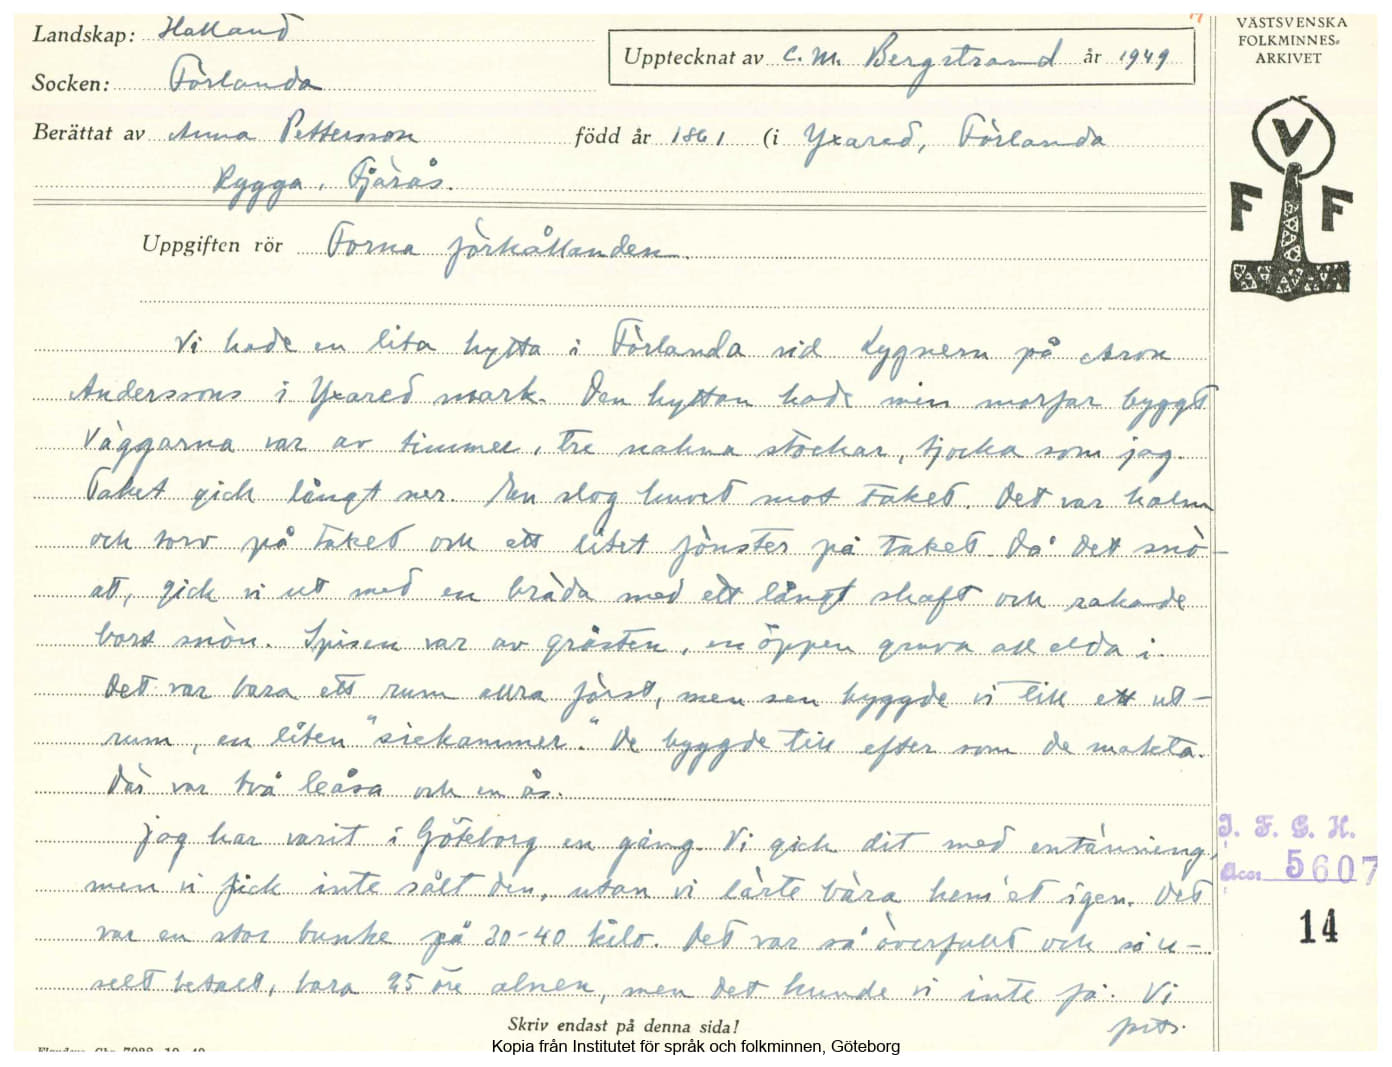 Landskap: Halland
Upptecknat av C. M. Bergstrand år 1949
VÄSTSVENSKA
FOLKMINNES-
ARKIVET
Socken: Förlanda
Berättat av Anna Pettersson född år 1861 (i Yxared, Förlanda
Rygga, Fjärås.
V
F F
Uppgiften rör Forna förhållanden.
Vi hade en lita hytta i Förlanda vid Lygnern på Aron
Anderssons i Yxared mark. Den hyttan hade min morfar byggt
Väggarna var av timmer, tre nakna stockar, tjocka som jag.
Taket gick långt ner. En slog huvet mot taket. Det var halm
och torv på taket och ett litet fönster på taket. Då det snö-
at, gick vi ut med en bräda med ett långt skaft och rakade
bort snön. Spisen var av gråsten, en öppen gruva att elda i.
Det var bara ett rum allra först, men sen byggde vi till ett ut-
rum, en liten "siekammer." De byggde till efter som de makta.
Där var två leåsa och en ås.
Jag har varit i Göteborg en gång. Vi gick dit med entänning,
men vi fick inte sålt den, utan vi lärte bära hem'et igen. Det
var en stor bunke på 30-40 kilo. Det var så överfullt och så u-
selt betalt, bara 25 öre alnen, men det kunde vi inte få. Vi
forts.
J. F. G. H.
Acc. 5607
14
Skriv endast på denna sida!
Kopia från Institutet för språk och folkminnen, Göteborg